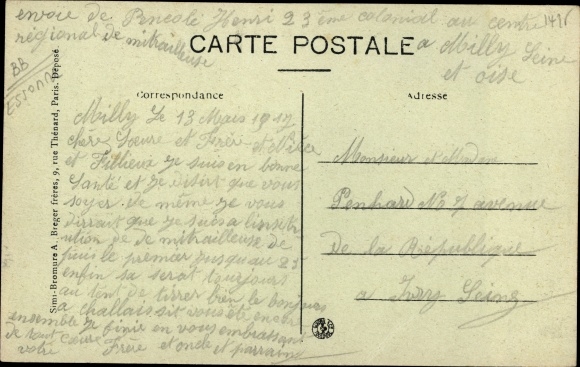 envoie de Pncolé Henri 23 ème colonial au centre
régional de mitrailleuse
a Milly Seine
et oise
1418
BB
ESSONNE
CARTE POSTALE
Correspondance
Adresse
Simi-Bromure A. Breger frères, 9, rue Thénard, Paris. Déposé
Milly Le 13 Mars 1917
chère Soeure et Frère et Nièce
et Fillieux je suis en bonne
Santé et je désire que vous
soyer de même je vous
dirrait que je suis a linstre
ution de mitrailleuse de
puis le premier jusquau 25
enfin sa serat tourjours
au tent de tirrer bien le bonjour
a challais sit vous ète encor
ensemble je finir en vous embrassant
de tout coeure
votre Frère et oncle et parrain
Monsieur et Madam
Penhard No 7 avenue
De la République
a Ivry Seine